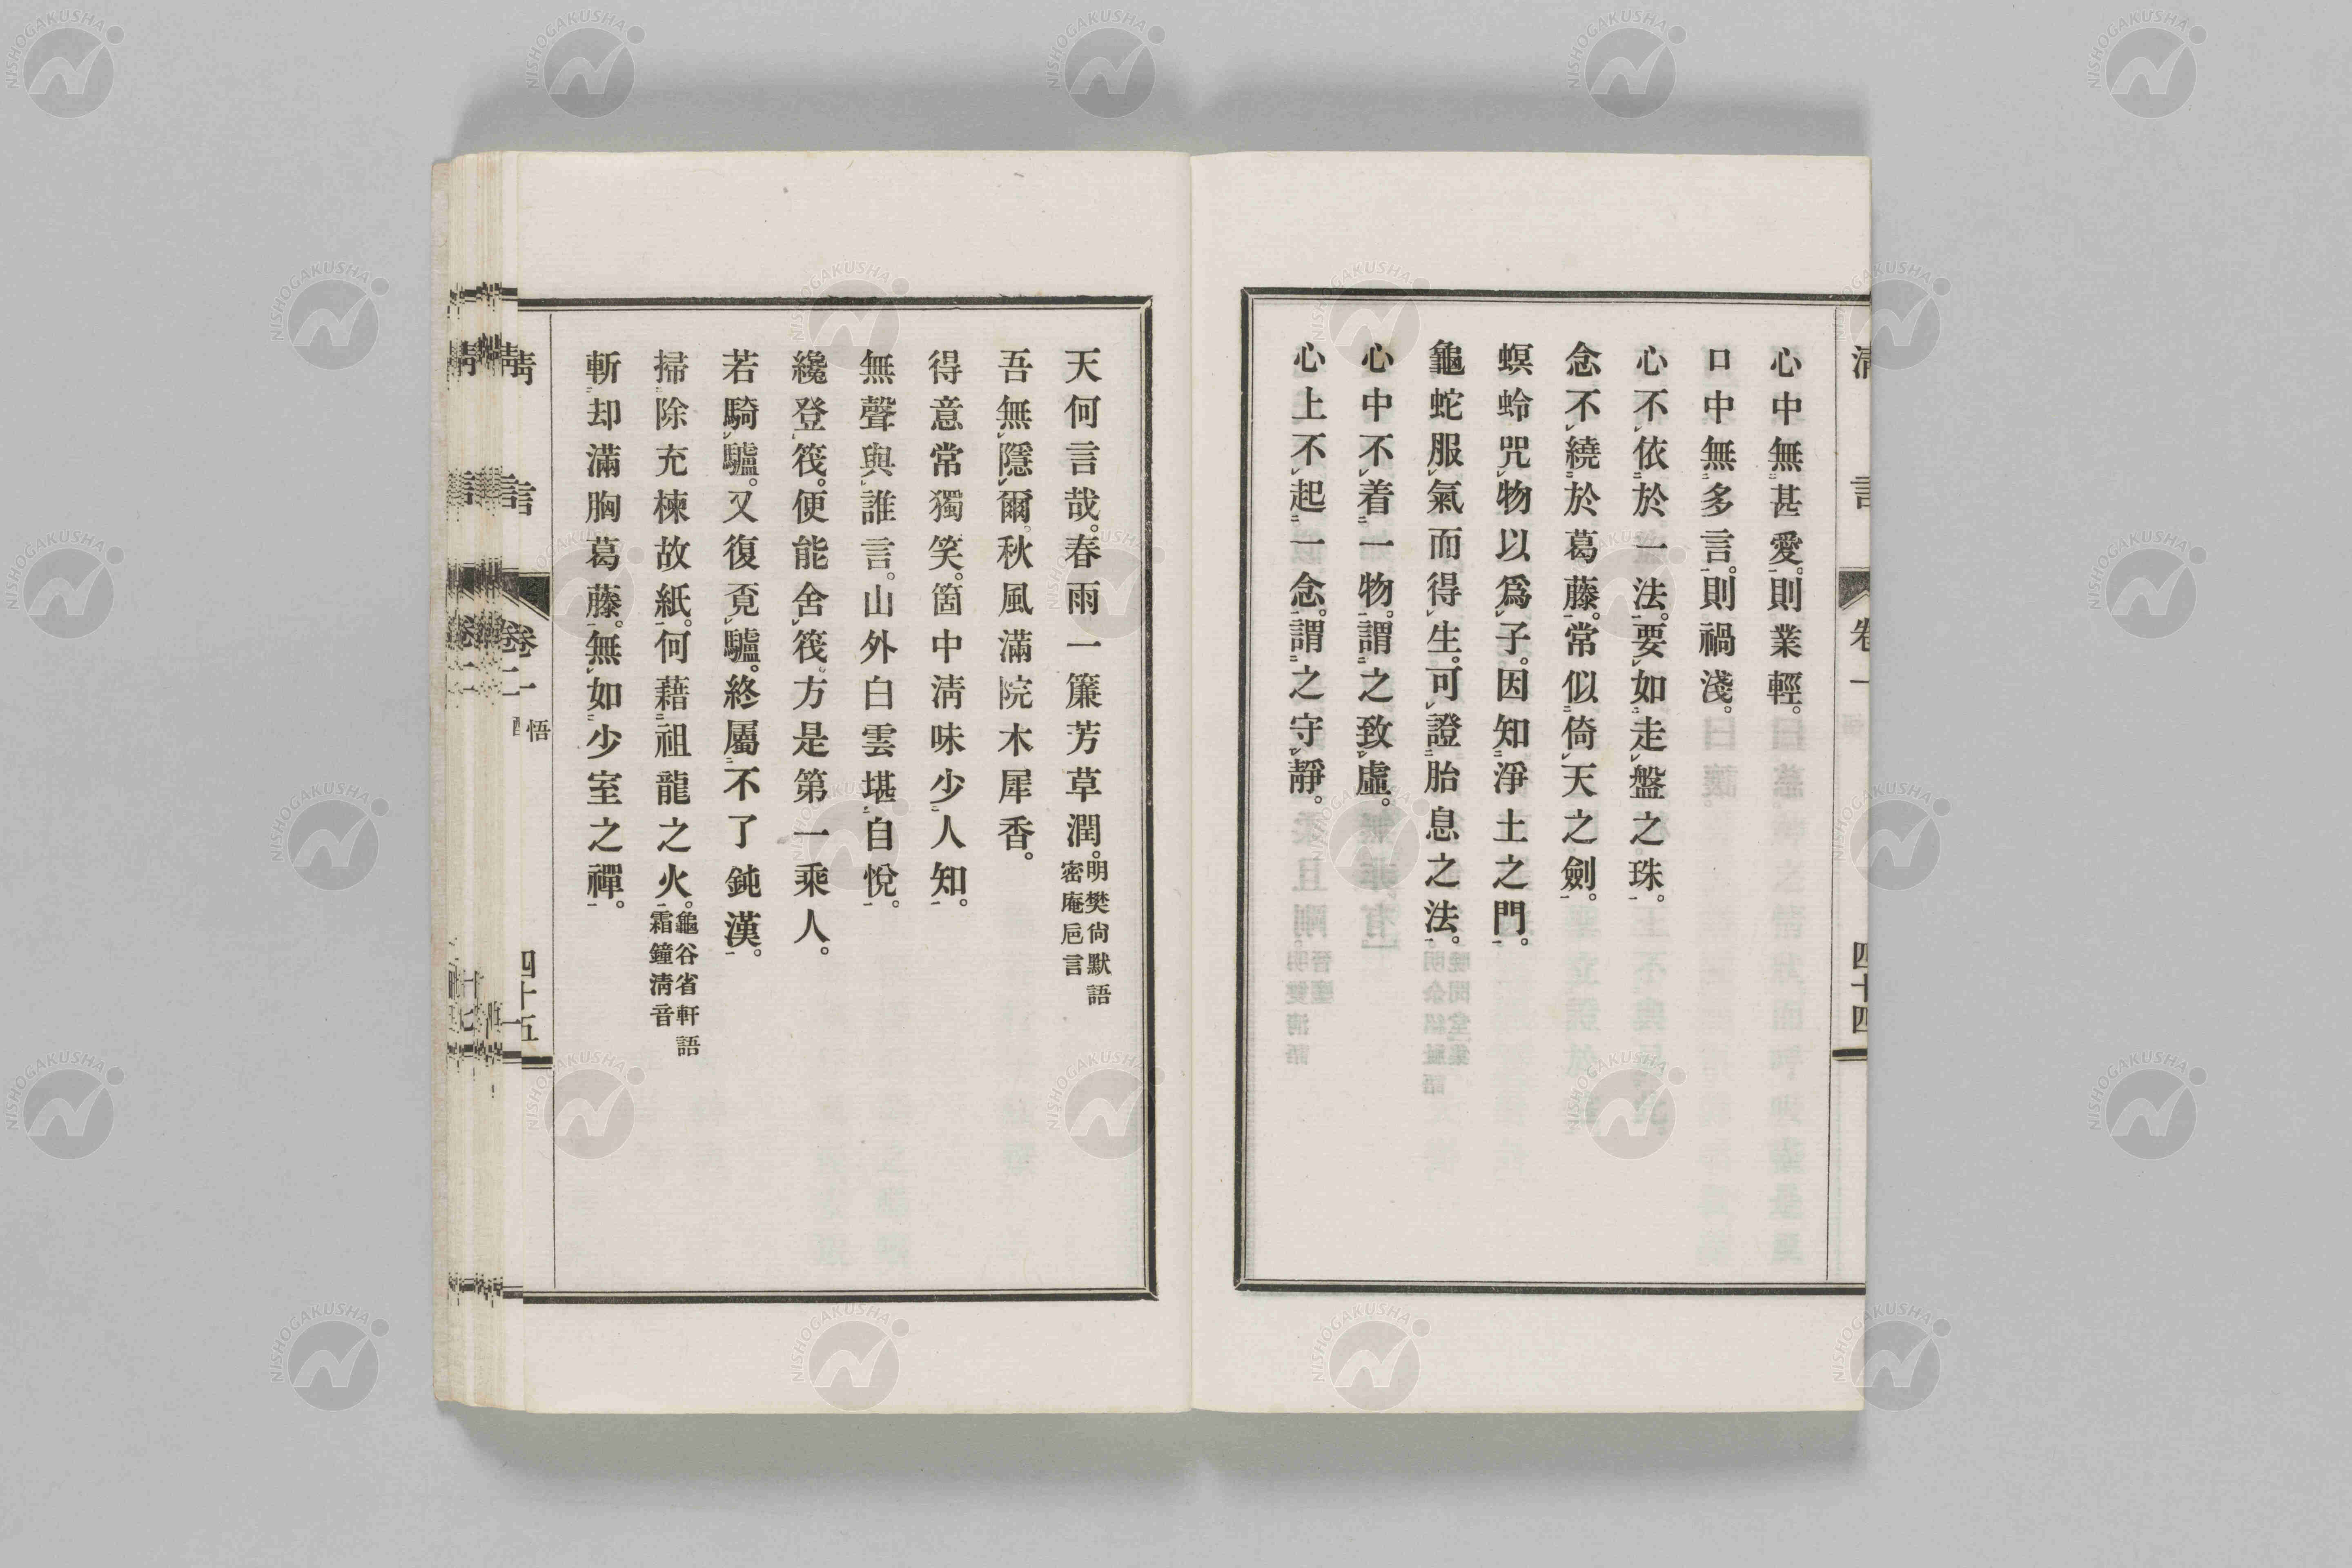 清言 卷一 四十四
心中無甚愛。則業輕。
口中無多言。則禍淺。
心不依於一法。要如走盤之珠。
念不繞於葛藤。常似倚天之劍。
螟蛉咒物以爲子。因知淨土之門。
龜蛇服氣而得生。可證胎息之法。
心中不着一物。謂之致虛。
心上不起一念。謂之守靜。
天何言哉。春雨一簾芳草潤。明樊尙默語密庵巵言
吾無隱爾。秋風滿院木犀香。
得意常獨笑。箇中淸味少人知。
無聲與誰言。山外白雲堪自悅。
纔登筏。便能舍筏。方是第一乘人。
若騎驢。又復覓驢。終屬不了鈍漢。
掃除充楝故紙。何藉祖龍之火。龜谷省軒語霜鐘淸音
斬却滿胸葛藤。無如少室之禪。
淸言 卷一 悟 四十五
NISHOGAKUSHA